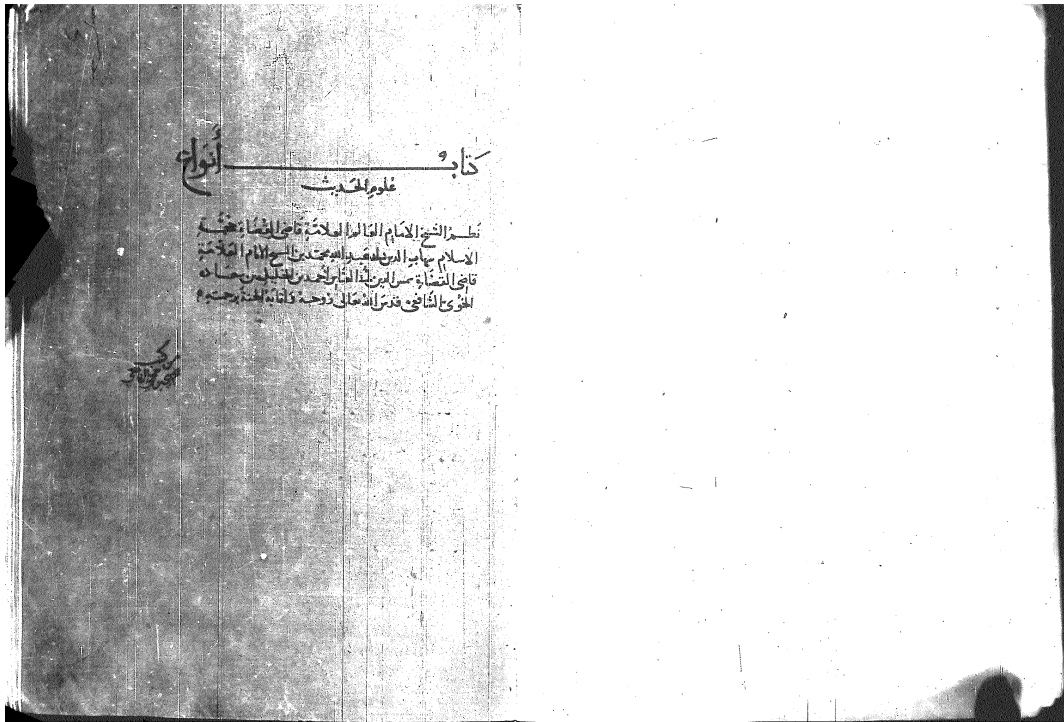 كتاب أنواع
علوم الحديث
نظم الشيخ الامام العالم العلامة قاضي القضاة حجة
الاسلام شهاب الدين ابي عبد الله محمد بن الشيخ الامام العلامة
قاضي القضاة شمس الدين ابي العباس احمد بن الخليل بن سعاده
الخوي الشافعي قدس الله تعالى روحه وأثابه الجنة برحمته